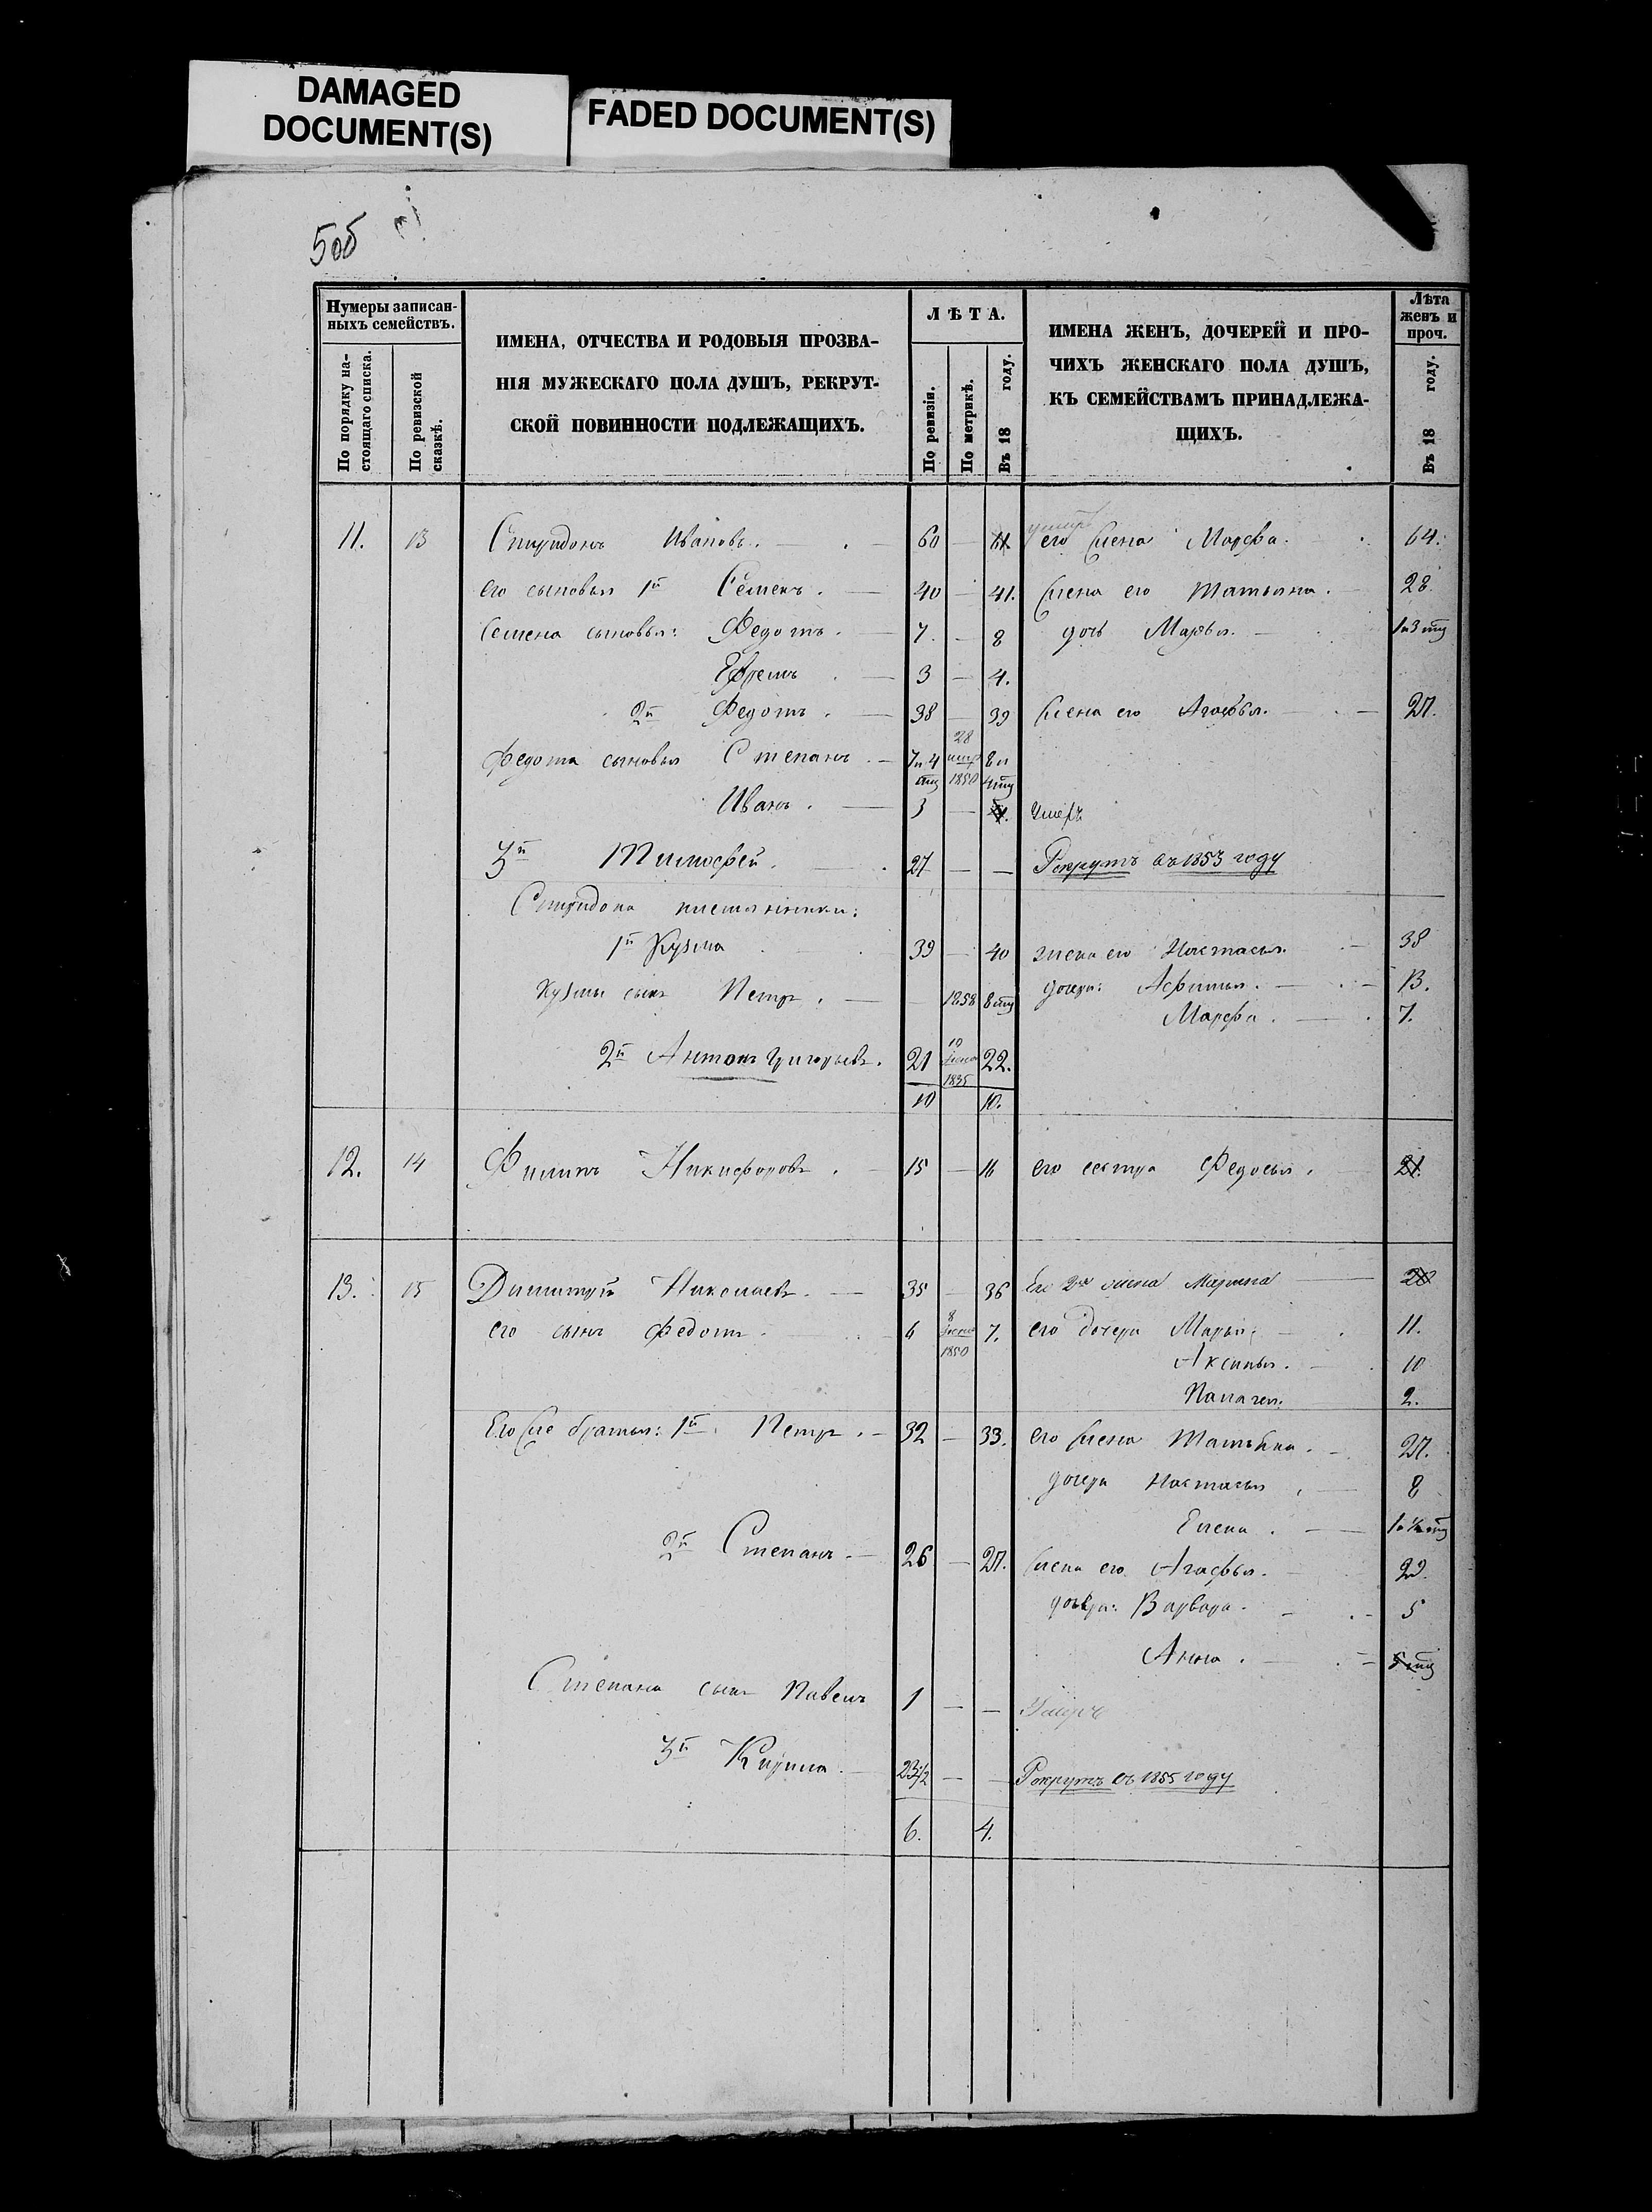 DAMAGED
DOCUMENT(S)
FADED DOCUMENT(S)
5об
Нумеры записан-
ныхъ семействъ.
По порядку на-
стоящаго списка.
По ревизской
сказкѣ.
ИМЕНА, ОТЧЕСТВА И РОДОВЫЯ ПРОЗВА-
НІЯ МУЖЕСКАГО ПОЛА ДУШЪ, РЕКРУТ-
СКОЙ ПОВИННОСТИ ПОДЛЕЖАЩИХЪ.
ЛѢТА.
По ревизіи.
По метрикѣ.
Въ 18 году.
ИМЕНА ЖЕНЪ, ДОЧЕРЕЙ И ПРО-
ЧИХЪ ЖЕНСКАГО ПОЛА ДУШЪ,
КЪ СЕМЕЙСТВАМЪ ПРИНАДЛЕЖА-
ЩИХЪ.
Лѣта
женъ и
проч.
Въ 18 году.
11. 13 Спиридонъ Ивановъ. — 60 — его жена Марфа. 64.
его сыновья 1й Семенъ. — 40 — 41. жена его Татьяна. — 28.
Семена сыновья: Федотъ. — 7. — 8 дочь Марья. — 1 и 3 мц
Ефремъ — 3 — 4.
2й Федотъ. — 38 — 39 жена его Агафья. — 27.
Федота сыновья Степанъ. — 7 и 4 мц 28 1850 8 и 4 мц
Иванъ. — 3 — умеръ
3й Тимофей. 27 — — Рекрутъ въ 1853 году
Спиридона племянники:
1й Кузма 39 — 40 жена его Настасья. — 38
Кузмы сынъ Петръ. — 1858 8 мц дочери: Афимья. — 13.
Марфа. — 7.
2й Антонъ Григорьевъ. 21 10 1835 22.
10 10.
12. 14 Филипъ Никифоровъ. — 15 — 16 его сестра Федосья. — 21.
13. 15 Димитрій Николаевъ. — 35 — 36 Его 2я жена Марина — 20
его сынъ Федотъ. 6 8 1850 7. его дочери Марья; — 11.
Аксинья. — 10
Палагея. 2.
Его же братья: 1й Петръ. — 32 — 33. его жена Татьяна. — 27.
дочери Настасья, — 8
Елена. —
2й Степанъ. — 26 — 27. жена его Агафья. 22.
дочери: Варвара. — 5
Анна. — 5 мц
Степана сынъ Павелъ 1 — — Умеръ
3й Кирила. — 23 1/2 — — Рекрутъ въ 1855 году
6. 4.